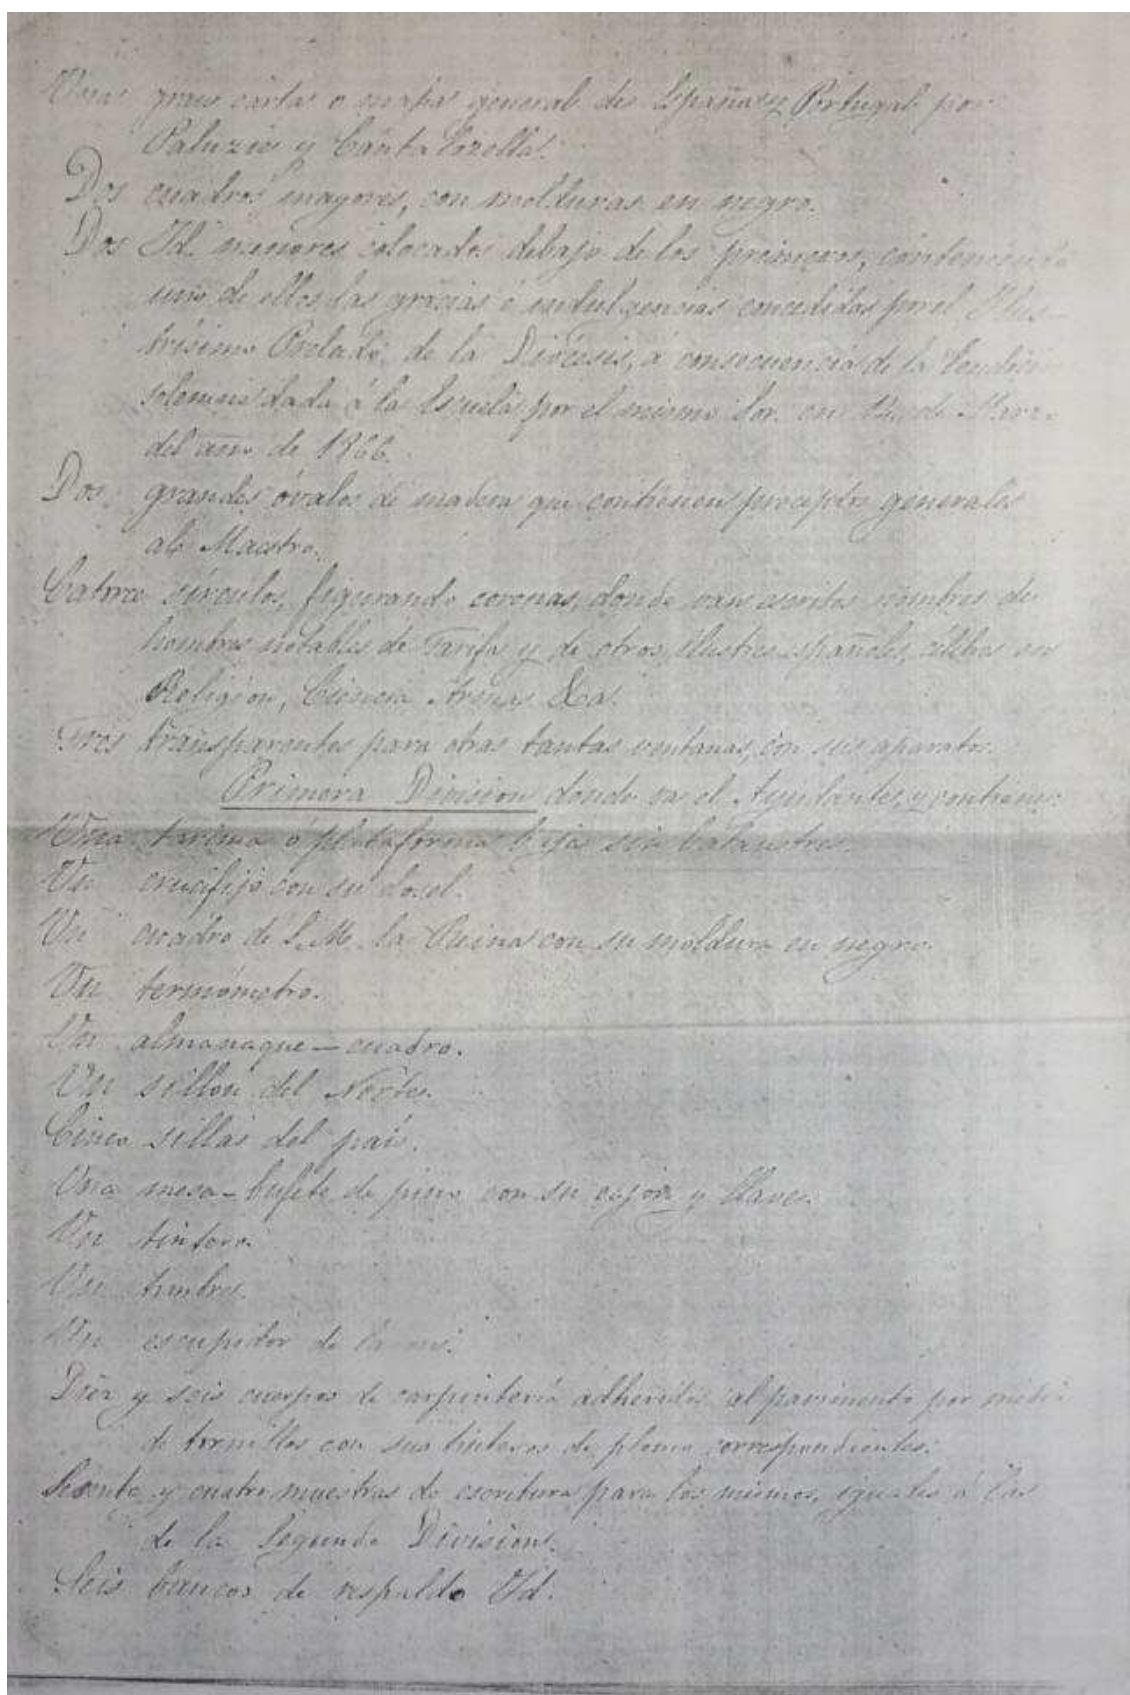 Una gran carta o mapa general de España y Portugal por
Paluzie y Cantalozella.
Dos cuadros mayores, con molduras en negro.
Dos Id. menores colocados debajo de los primeros, conteniendo
uno de ellos las gracias é indulgencias concedidas por el Ilus-
trísimo Prelado de la Diócesis, á consecuencia de la bendición
solemne dada á la Escuela por el mismo Sor. en 12 de Marzo
del año de 1866.
Dos grandes óvalos de madera que contienen preceptos generales
al Maestro.
Catorce círculos, figurando coronas, donde van escritos nombres de
hombres notables de Tarifa y de otros ilustres españoles, célebres en
Religion, Ciencia Armas &a.
Tres transparentes para otras tantas ventanas, con sus aparatos.
Primera Division donde va el Ayudante, y contiene:
Una tarima ó plataforma baja sin balaustres.
Un crucifijo con su dosel.
Un cuadro de S. M. la Reina con su moldura en negro.
Un termómetro.
Un almanaque - cuadro.
Un sillon del Norte.
Cinco sillas del país.
Una mesa - bufete de pino con su cajon y llave.
Un tintero.
Un timbre.
Un escupidor de
Diez y seis cuerpos de carpintería adheridos al pavimento por medio
de tornillos con sus tinteros de plomo correspondientes.
Sesenta y cuatro muestras de escritura para los mismos, iguales á las
de la Segunda Division.
Seis bancos de respaldo Id.